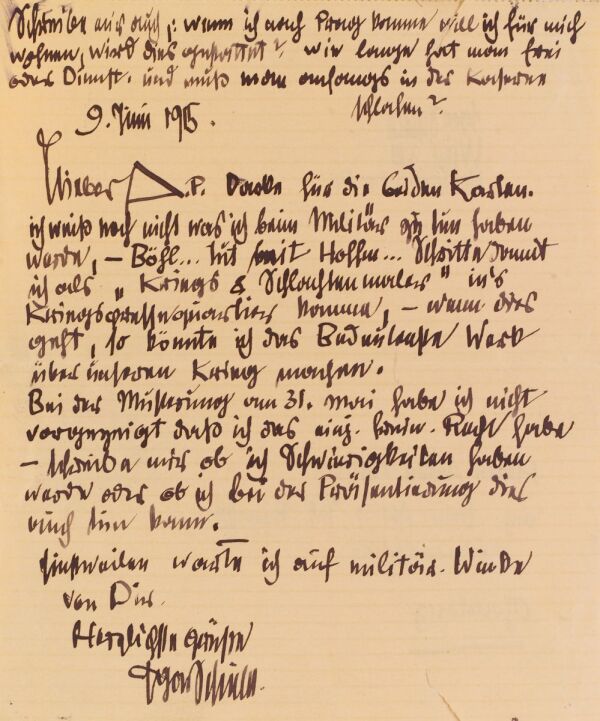 Schreibe mir auch,: wenn ich nach Prag komme will ich für mich
wohnen, wird dies gestattet? wie lange hat man frei
oder Dienst. und muß man anfangs in der Kaserne
schlafen?
9. Juni 1915.
Lieber A.P. Danke für die beiden Karten.
ich weiß noch nicht was ich beim Militär zu tun haben
werde, – Böhl... tut mit Hoffm... Schritte damit
ich als „Kriegs & Schlachtenmaler" in's
Kriegspressequartier komme, – wenn dies
geht, so könnte ich das Bedeutendste Werk
über unseren Krieg machen.
Bei der Musterung am 31. Mai habe ich nicht
vorgezeigt daß ich das einj. freiw. Recht habe
– schreibe mir ob ich Schwierigkeiten haben
werde oder ob ich bei der Präsentierung dies
auch tun kann.
Einstweilen warte ich auf militär. Winke
von Dir.
Herzlichste Grüße
Egon Schiele.